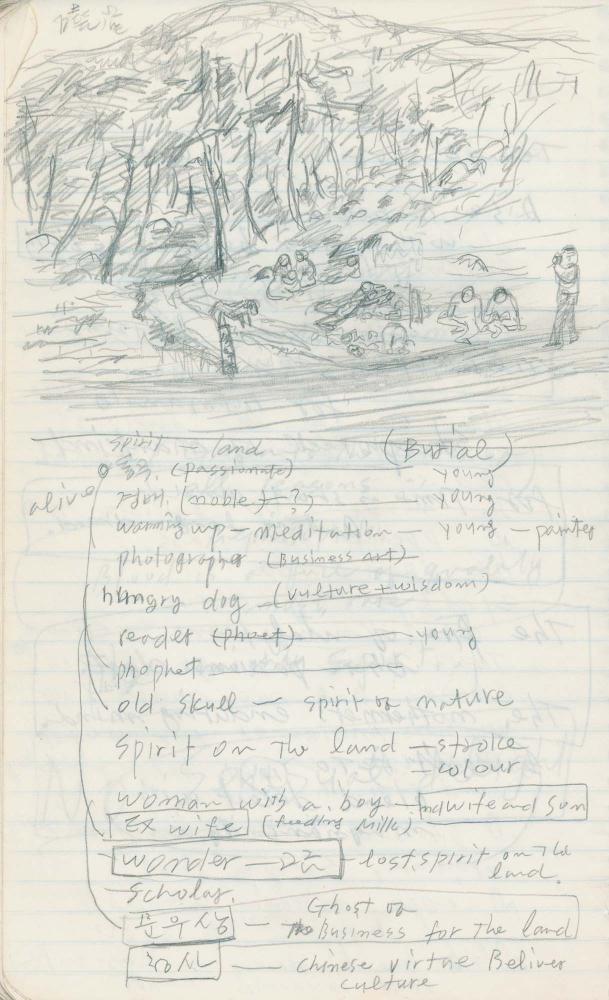 spirit — land (Burial)
(passionate) — young
(noble — ?) — young
alive
warming up — meditation — young — painter
photographer (Business art)
hungry dog (vulture + wisdom)
reader (phoet) — young
phophet
old skull — spirit of nature
spirit on The land — stroke
— colour
woman with a boy — midwife and sun
EX wife (feeding Milk)
wonder — — lost spirit on The
land.
Scholar.
문우상 — Ghost of
Business for The land
— chinese virtue Beliver
culture